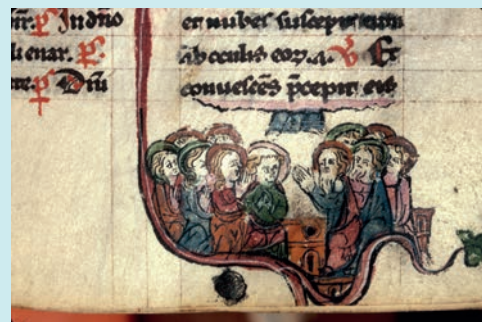 In dño
enar. ℟.
et nubes suscepit eum
ab occulis eoꝝ .a. ℣ Et
convescēs p̄cepit eis